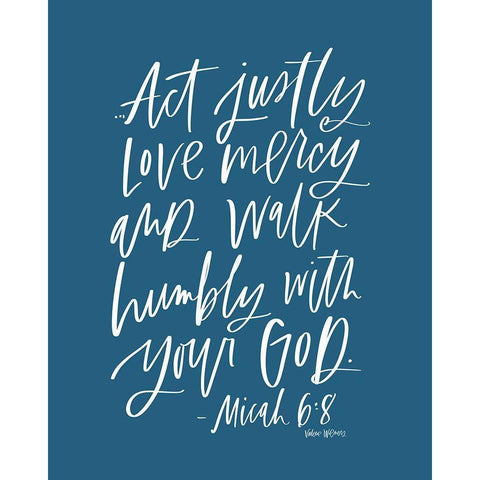 ...Act justly
Love mercy
and walk
humbly with
your God.
- Micah 6:8